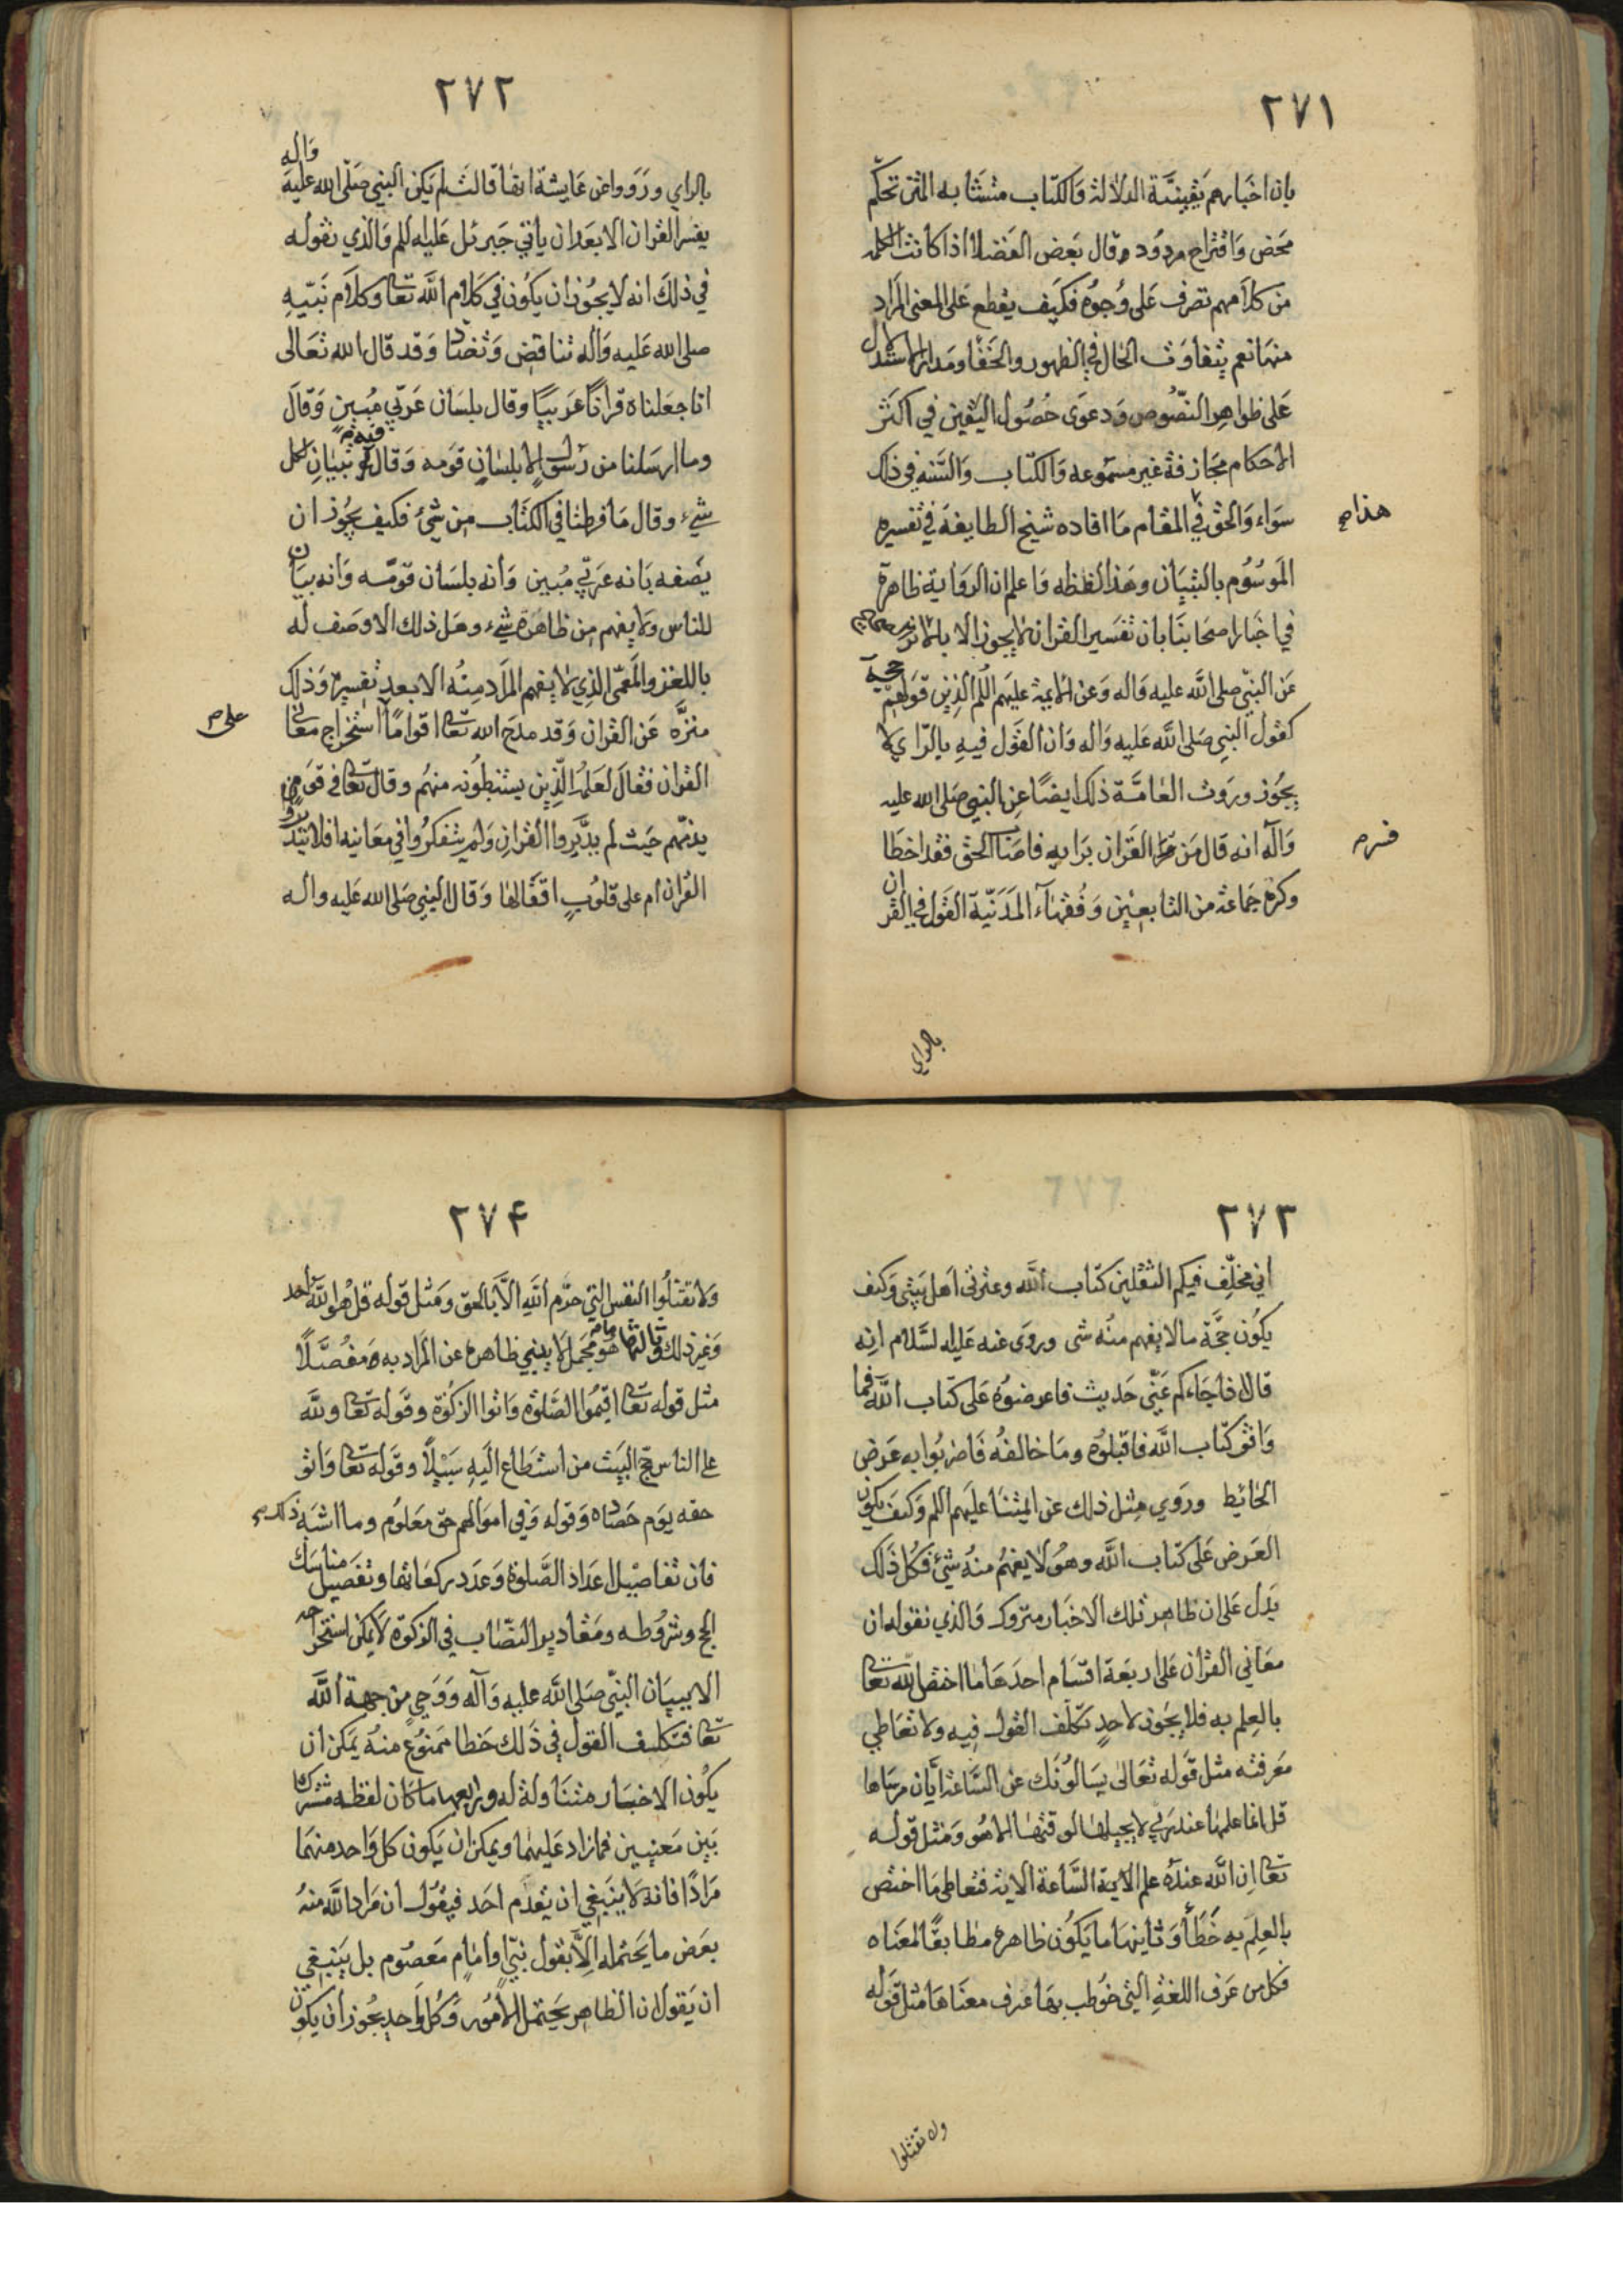 ٢٧١
بان اخبارهم يقينيّة الدلالة والكتاب متشابه المتن تحكّم
محض واقتراح مردود وقال بعض الفضلا اذا كانت الكلمه
من كلامهم تصرف على وجوه فكيف يقطع على المعنى المراد
منها نعم يتفاوت الحال في الظهور والخفا ومدار الاستدلال
على ظواهر النصّوص ودعوى حصول اليقين في اكثر
الاحكام مجازفة غير مسموعه والكتاب والسّنه في ذلك
سواء والحق في المقام ما افاده شيخ الطايفة في تفسيره
هذا
الموسوم بالتبيان وهذا لفظه واعلم ان الرواية ظاهرة
في اخبار اصحابنا بان تفسير القران لا يجوز الا بالاثر
عن النبيّ صلى الله عليه واله وعن الائمة عليهم اللم الذين قولهم حجة
كقول النبي صلى الله عليه واله وان القول فيه بالرّاي لا
يجوز وروت العامّة ذلك ايضًا عن النبي صلى الله عليه
وآله انه قال من القران برايه فاصاب الحق فقد اخطا
فسر
وكره جماعة من التابعين وفقهآء المدنيّة القول في القران
بالراي
٢٧٢
بالراي ورووا عن عايشة انها قالت لم يكن النبي صلّى الله عليه واله
يفسر القران الا بعد ان ياتي جبرئل عليه اللم والذي نقوله
في ذلك انه لا يجوز ان يكون في كلام الله تعا وكلام نبيّه
صلى الله عليه واله تناقض وتضاد وقد قال الله تعالى
انا جعلناه قرانًا عربيًا وقال بلسان عربّي مبين وقال
وما ارسلنا من رسول الا بلسان قومه وقال فيه تبيان لكل
شيء وقال ما فرطنا في الكتاب من شئ فكيف يجوز ان
يصفه بانه عربّي مبين وانه بلسان قومّه وانه بيان
للناس ولا يفهم من ظاهره شيء وهل ذلك الا وصف له
باللغز والمعمّى الذي لا يفهم المراد منه الا بعد تفسيره وذلك
منزّه عن القران وقد مدح الله تعا اقوامًا استخراج معاني
على
القران فقال لعلمه الذين يستنبطونه منهم وقال تعا في قوم
يذمّهم حيث لم يدّبروا القران ولم يتفكروا في معانيه افلا يتدبرون
القران ام على قلوب اقفالها وقال النبي صلى الله عليه واله
٢٧٣
اني مخلّف فيكم الثقلين كتاب الله وعترتى اهل بيتي وكيف
يكون حجّة ما لا يفهم منه شى وروى عنه عليه لسّلام انه
قال اذا جاءكم عنّي حديث فاعرضوه على كتاب الله فما
وافق كتاب الله فاقبلوه وما خالفه فاضربوا به عرض
الحائيط وروي مثل ذلك عن ائمتنا عليهم اللم وكيف يكون
العرض على كتاب الله وهو لا يفهم منه شئ فكل ذلك
يدل على ان ظاهر تلك الاخبار متروك والذي نقوله ان
معاني القرآن على اربعة اقسام احدها ما اختص الله تعا
بالعلم به فلا يجوز لاحد تكلف القول فيه ولا تعاطي
معرفته مثل قوله تعالى يسالونك عن السّاعة ايّان مرساها
قل انما علمها عند ربي لا يجيلها لوقتها الا هو ومثل قوله
تعا ان الله عنده علم الاية السّاعة الاية فتعاطى ما اختص
بالعلم به خطأ وثانيها ما يكون ظاهره مطابقًا لمعناه
فكل من عرف اللغة التي خوطب بها عرف معناها مثل قوله
ولا تقتلوا
٢٧۴
ولا تقتلوا النفس التي حرّم الله الّا بالحق ومثل قوله قل هو الله احد
وغير ذلك وثالثها ما هو مجمل لا ينبي ظاهره عن المراد به مفصّلًا
مثل قوله تعا اقيموا الصّلوة واتوا الزكوة وقوله تعا ولله
على الناس حجّ البيت من استطاع اليه سبيلًا وقوله تعا واتو
حقه يوم حصاده وقوله وفي اموالهم حق معلوم وما اشبه ذلك
فان تفاصيل اعداد الصّلوة وعدد ركعاتها وتفصيل مناسك
الحج وشروطه ومقادير النصّاب في الزكوة لا يمكن استخراجه
الا ببيان النبيّ صلى الله عليه وآله ووحي من جهة الله
تعا فتكليف القول في ذلك خطا ممنوع منه يمكن ان
يكون الاخبار متناولة له ورابعها ما كان لفظه مشتركا
بين معنيين فمازاد عليهما ويمكن ان يكون كل واحد منهما
مرادًا فانه لا ينبغي ان يقدم احد فيقول ان مراد الله منه
بعض ما يحتمله الّا بقول نبيّ او امام معصوم بل ينبغي
ان يقول ان الظاهر يحتمل لامور وكل واحد يجوز ان يكون